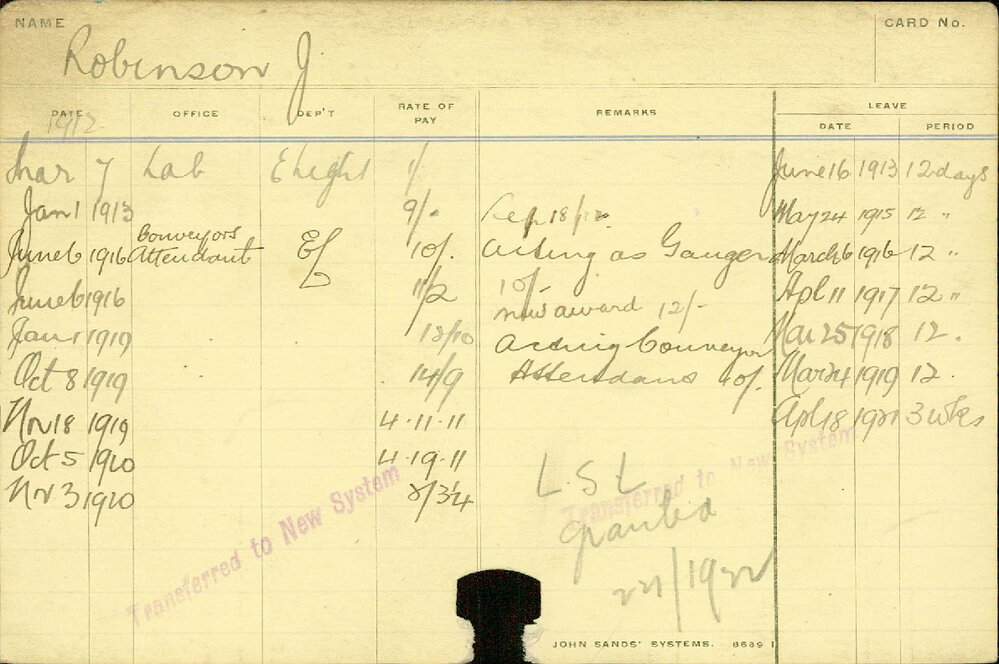 NAME
CARD No.
Robinson J
DATE OFFICE DEP'T RATE OF PAY REMARKS LEAVE
DATE PERIOD
1912
Mar 7 Lab E Light June 16 1913 12 days
Jan 1 1913 9/- Sep 18/12 May 24 1915 12 "
June 6 1916 Conveyors Attendant EL 10/. Acting as Ganger March 6 1916 12 "
June 6 1916 11/2 10/- Apl 11 1917 12 "
new award 12/-
Jan 1 1919 13/10 Acting Conveyor Mar 25 1918 12 .
Oct 8 1919 14/9 Attendans 10/. Mar 24 1919 12 .
Nov 18 1919 4.11.11 Apl 18 1921 3 wks
Oct 5 1920 4.19.11
Nov 3 1920 2/3¼
L.S.L
granted
1922
Transferred to New System
Transferred to New System
JOHN SANDS' SYSTEMS. 8689